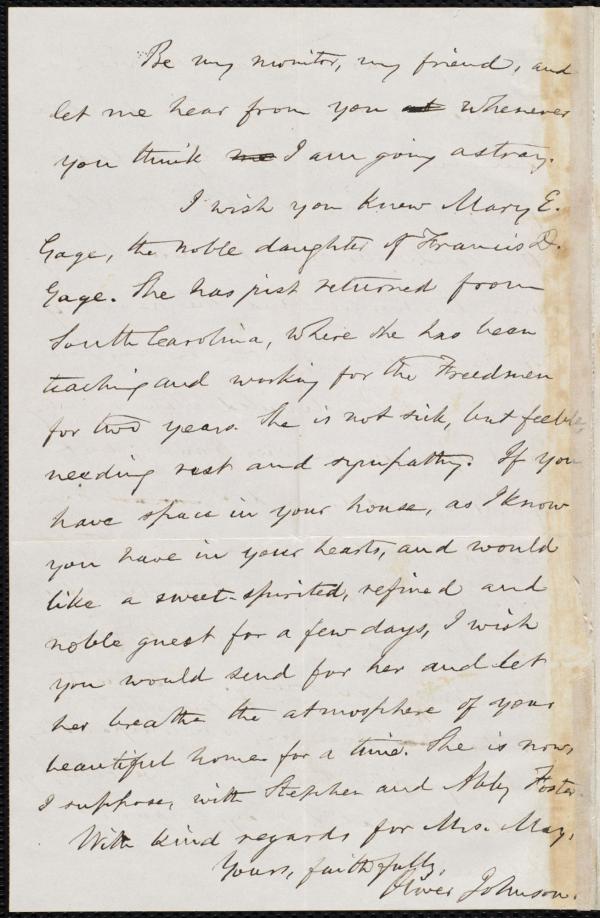 Be my monitor, my friend, and
let me hear from you at whenever
you think me I am going astray.
I wish you knew Mary E.
Gage, the noble daughter of Francis D.
Gage. She has just returned from
South Carolina, where she has been
teaching and working for the Freedmen
for two years. She is not sick, but feeble,
needing rest and sympathy. If you
have space in your house, as I know
you have in your hearts, and would
like a sweet-spirited, refined and
noble guest for a few days, I wish
you would send for her and let
her breathe the atmosphere of your
beautiful home for a time. She is now,
I suppose, with Stephen and Abby Foster.
With kind regards for Mrs. May,
Yours, faithfully,
Oliver Johnson.